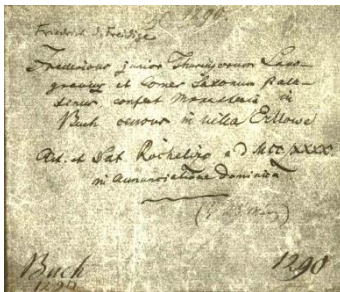 1290.
Friedrich d. Freidige
Fredericus junior Thuringorum Lan-
gravius et Comes Saxonum Pala-
tinus, confert Monasterio in
Buch censum in villa Erllowe
Act. et Dat Rochelizo a D MCCXXXX
in Annunciatione dominica
Buch
1290
1290